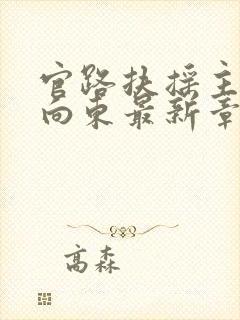 官路扶摇主
向东最新章
高森